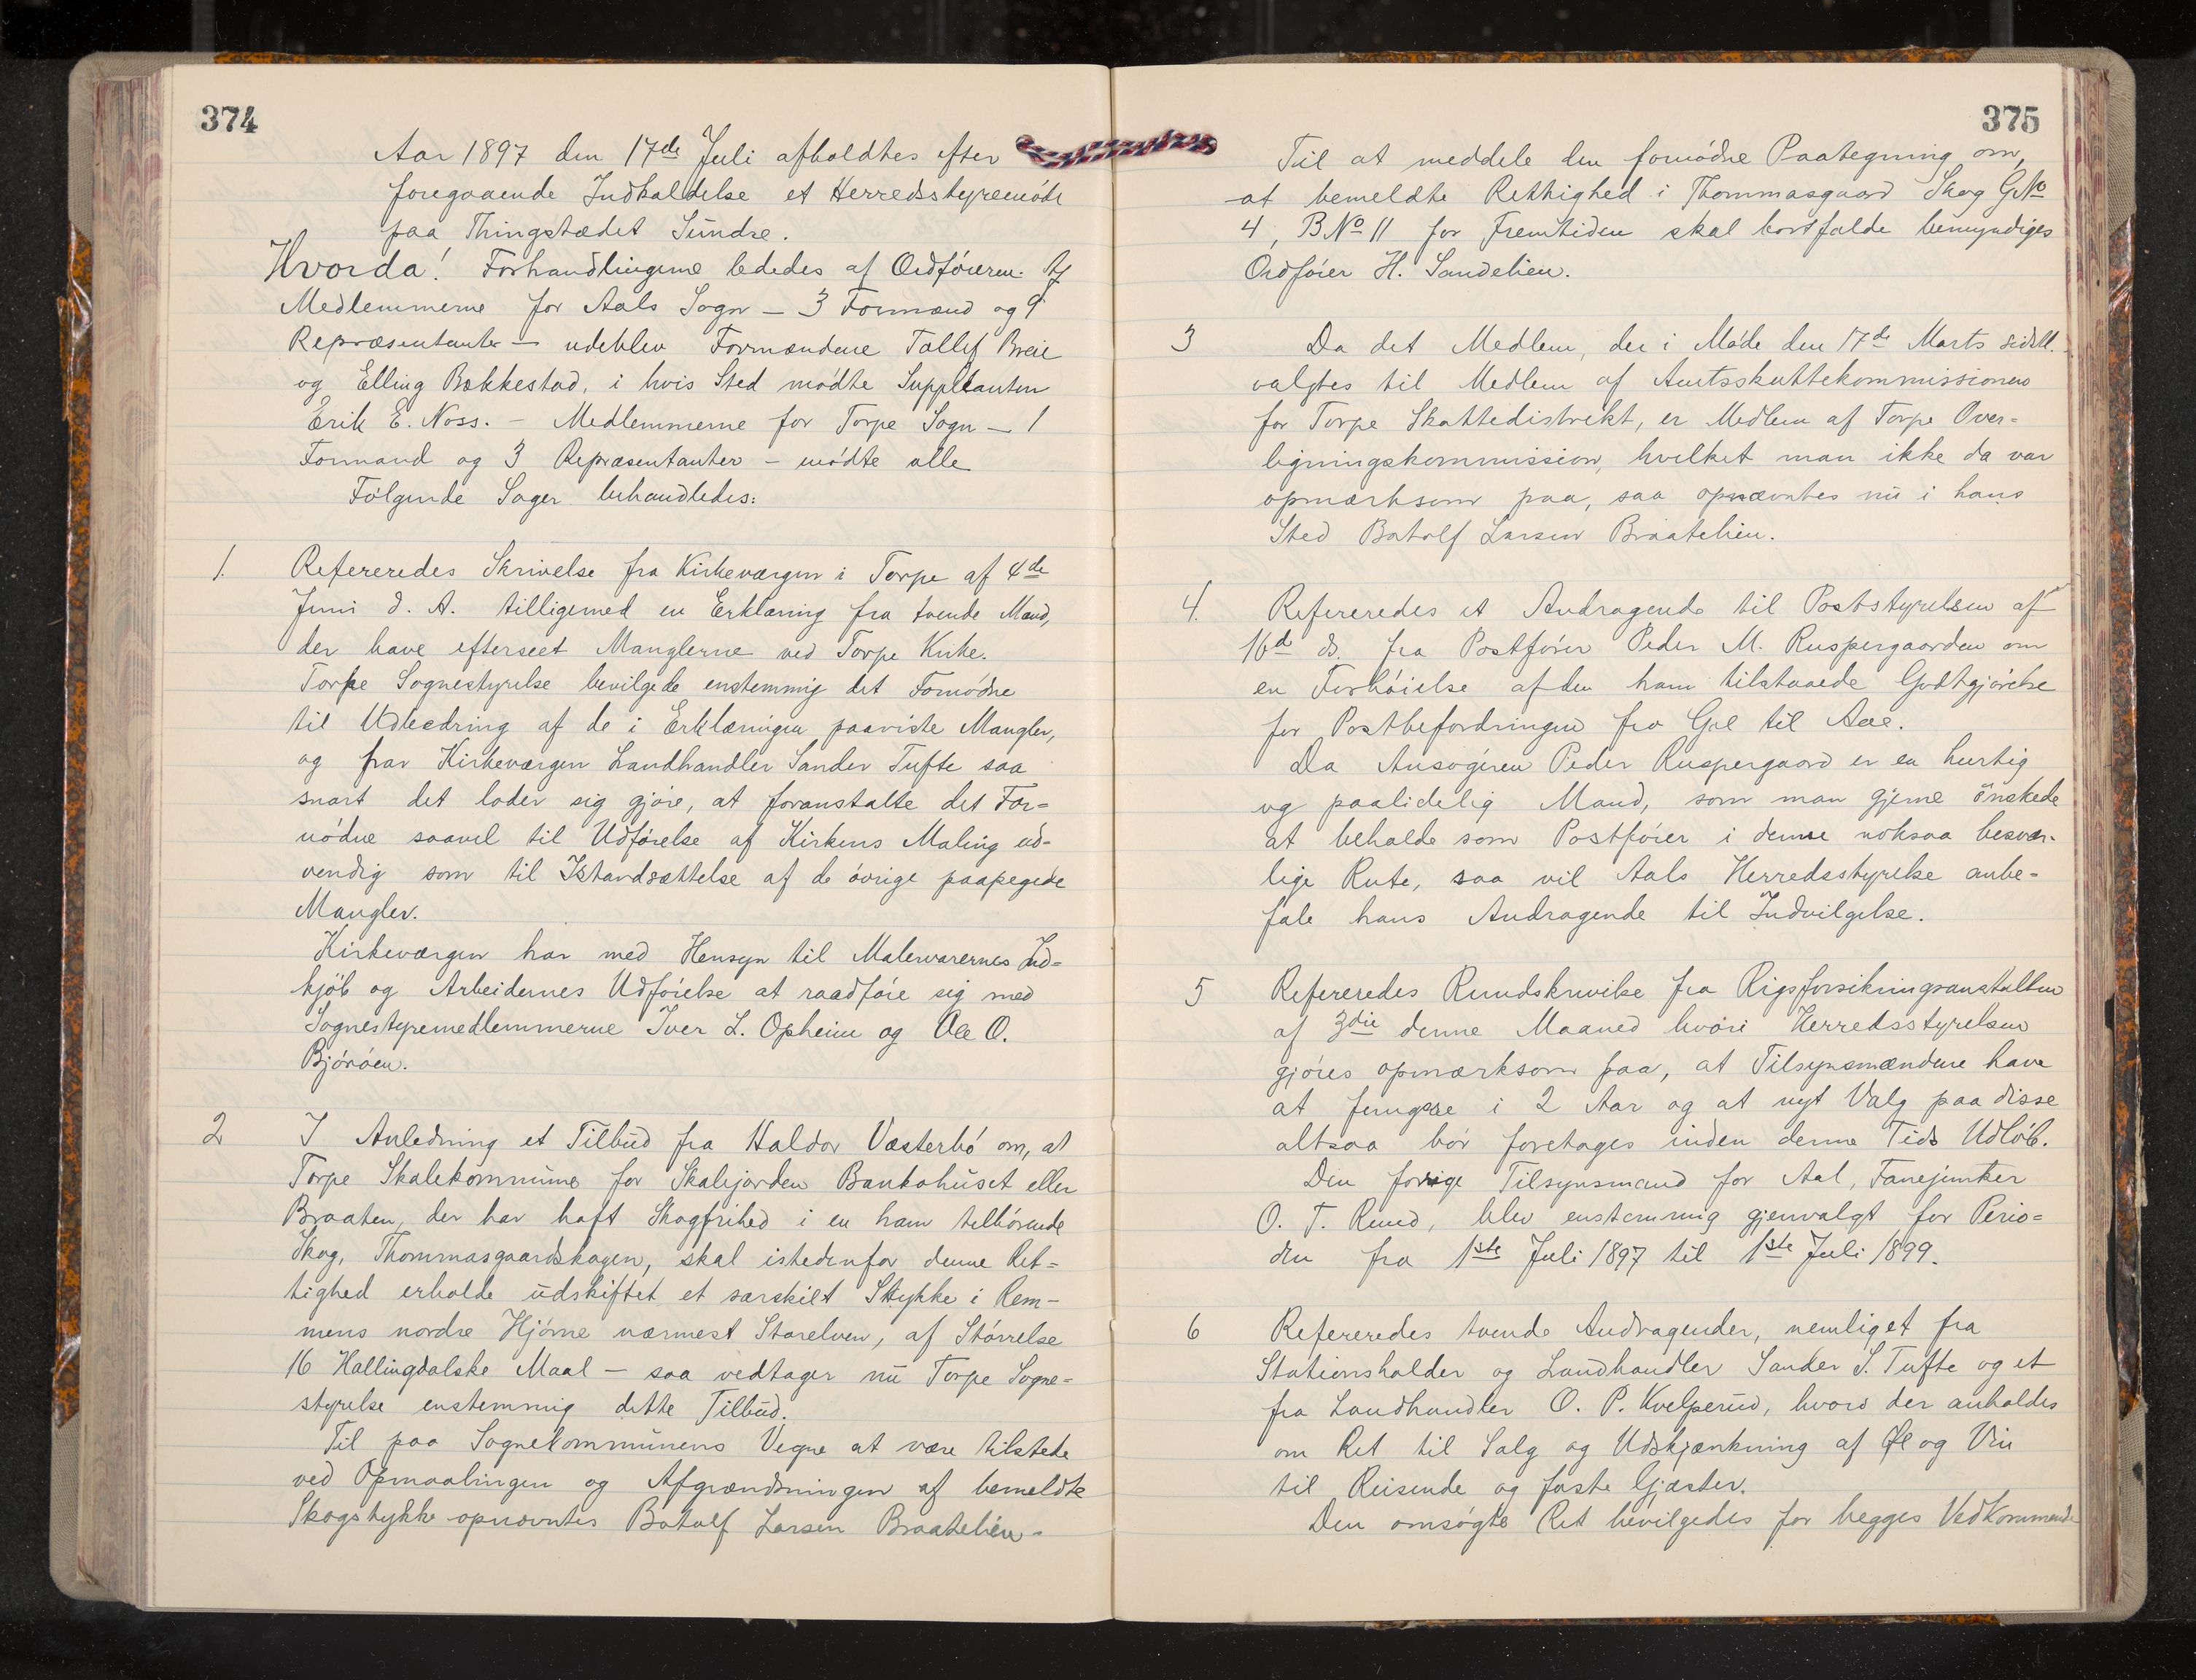 374
Aar 1897 den 17de Juli afholdtes efter
foregaaende Indkaldelse et Herredsstyremöde
paa Thingstædet Sundre.
Hvorda! Forhandlingerne lededes af Ordföreren. Af
Medlemmerne for Aals Sogn – 3 Formænd og 9
Repræsentanter – udeblev Formændene Tollef Breie
og Elling Bækkestad, i hvis Sted mödte Suppleanten
Erik E. Noss. – Medlemmerne for Torpe Sogn – 1
Formand og 3 Repræsentanter – mödte alle
Følgende Sager behandledes:
1. Refereredes Skrivelse fra Kirkeværgen i Torpe af 4de
Juni d. A. tilligemed en Erklæring fra tvende Mænd,
der have efterseet Manglerne ved Torpe Kirke.
Torpe Sognestyrelse bevilgede enstemmig det Fornödne
til Udbedring af de i Erklæringen paaviste Mangler,
og har Kirkeværgen Landhandler Sander Tufte saa
snart det lader sig gjöre, at foranstalte det For=
nödne saavel til Udförelse af Kirkens Maling ud-
vendig som til Istandsættelse af de övrige paapegede
Mangler.
Kirkeværgen har med Hensyn til Malervarernes Ind=
kjöb og Arbeidernes Udförelse at raadföre sig med
Sognestyremedlemmerne Iver L. Opheim og Ole O.
Björöen.
2 I Anledning et Tilbud fra Haldor Vesterbö om, at
Torpe Skolekommune for Skolejorden Bankohuset eller
Braaten, der har haft Skogfrihed i en ham tilhörende
Skog, Thommasgaardskogen, skal istedenfor denne Ret=
tighed erholde udskiftet et særskilt Stykke i Rem-
mens nordre Hjörne nærmest Storelven, af Störrelse
16 Hallingdalske Maal – saa vedtager nu Torpe Sogne=
styrelse enstemmig dette Tilbud.
Til paa Sognekommunens Vegne at være tilstede
ved Opmaalingen og Afgrændsningen af bemeldte
Skogstykke opnævntes Botolf Larsen Braatelien.
375
Til at meddele den fornödne Paategning om,
at bemeldte Rettighed i Thommasgaard Skog G№
4, B№ 11 for Fremtiden skal bortfalde bemyndiges
Ordförer H. Sandelien.
3 Da det Medlem, der i Möde den 17de Marts sidstl.
valgtes til Medlem af Amtsskattekommissionen
for Torpe Skattedistrikt, er Medlem af Torpe Over=
ligningskommission, hvilket man ikke da var
opmærksom paa, saa opnævntes nu i hans
Sted Botolf Larsen Braatelien.
4. Refereredes et Andragende til Poststyrelsen af
16d ds. fra Postförer Peder M. Ruspergaarden om
en Forhöielse af den ham tilstaaede Godtgjörelse
for Postbefordringen fra Gol til Aal.
Da Ansögeren Peder Ruspergaard er en hurtig
og paalidelig Mand, som man gjerne önskede
at beholde som Postförer i denne noksaa besvær-
lige Rute, saa vil Aals Herredsstyrelse anbe=
fale hans Andragende til Indvilgelse.
5 Refereredes Rundskrivelse fra Rigsforsikringsanstalten
af 3die denne Maaned hvori Herredsstyrelsen
gjöres opmærksom paa, at Tilsynsmændene have
at fungere i 2 Aar og at nyt Valg paa disse
altsaa bör foretages inden denne Tids Udlöb.
Den forrige Tilsynsmand for Aal, Fanejunker
O. T. Ruud, blev enstemmig gjenvalgt for Perio=
den fra 1ste Juli 1897 til 1ste Juli 1899.
6 Refereredes tvende Andragender, nemlig et fra
Stationsholder og Landhandler Sander S. Tufte og et
fra Landhandler O. P. Kvelperud, hvori der anholdes
om Ret til Salg og Udskjænkning af Øl og Vin
til Reisende og faste Gjæster.
Den omsögte Ret bevilgedes for begges Vedkommende